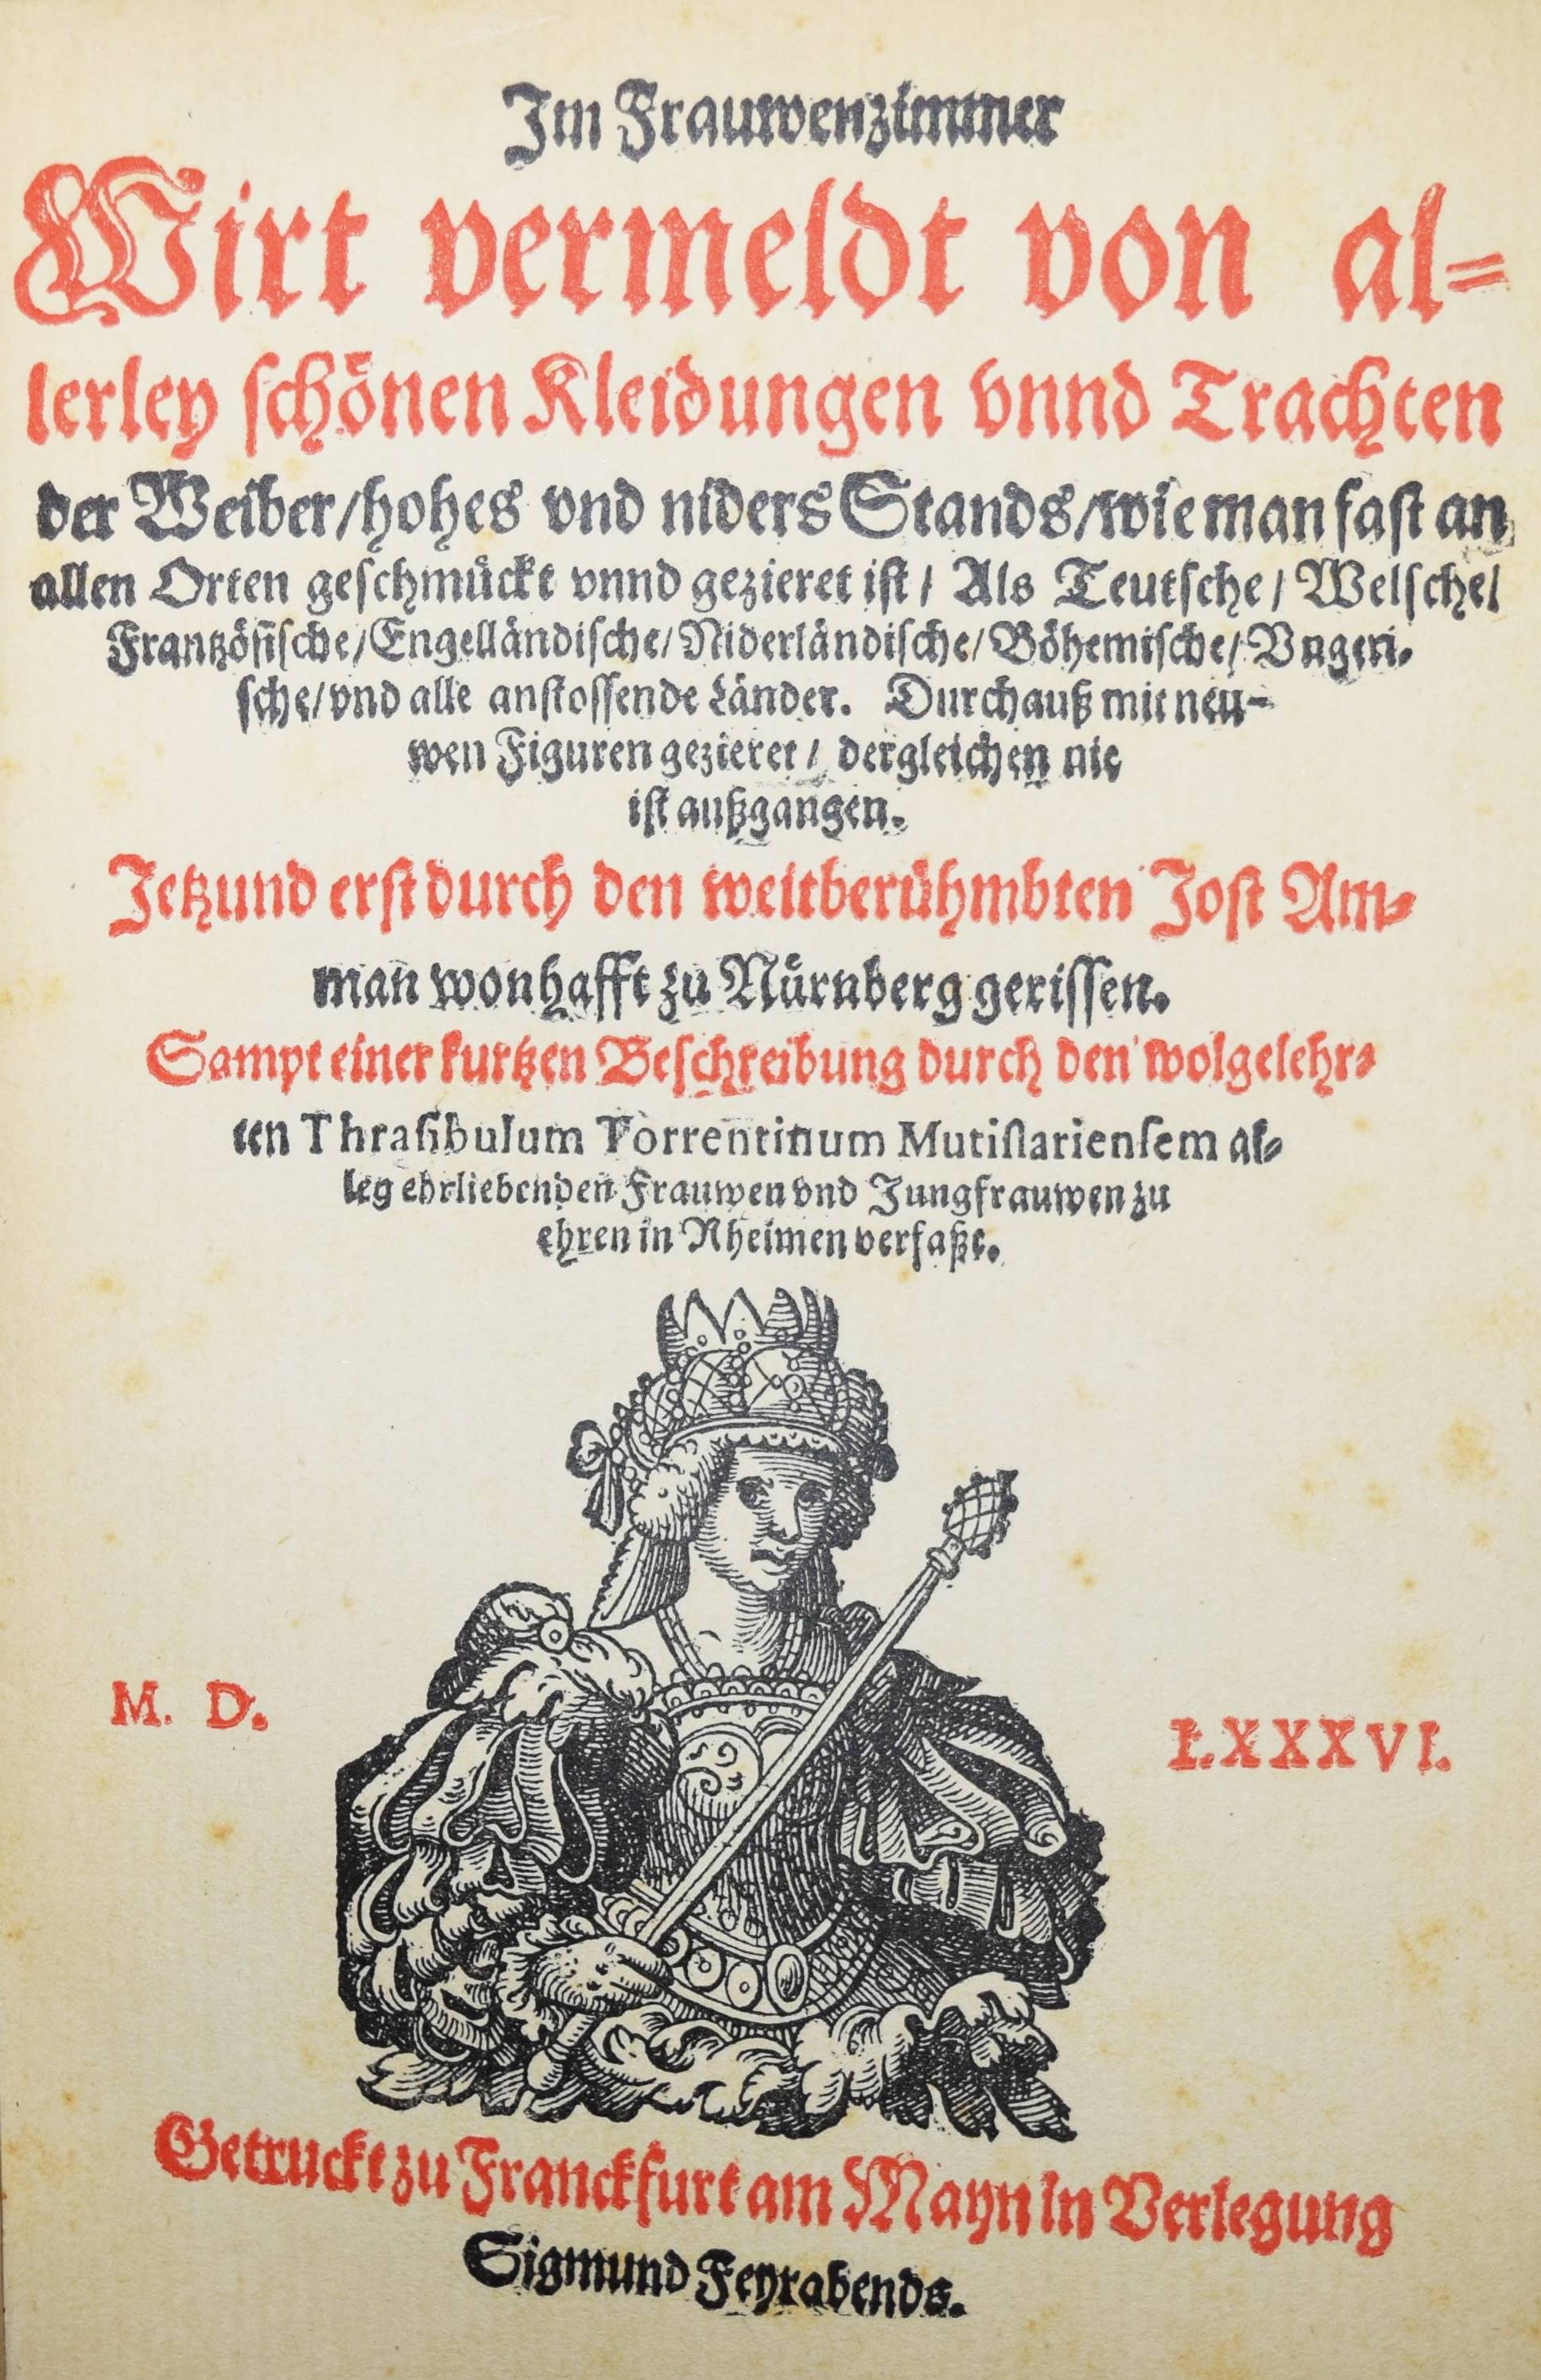 Im Frauwenzimmer
Wirt vermeldt von al=
lerley schönen Kleidungen vnnd Trachten
der Weiber/hohes vnd niders Stands/wie man fast an
allen Orten geschmückt vnnd gezieret ist/ Als Teutsche/ Welsche/
Frantzösische/Engelländische/Niderländische/Böhemische/Vngeri-
sche/vnd alle anstossende Länder. Durchauß mit neu-
wen Figuren gezieret/ dergleichen nie
ist außgangen.
Jetzund erst durch den weitberühmbten Jost Am-
man wonhafft zu Nürnberg gerissen.
Sampt einer kurtzen Beschreibung durch den wolgelehr-
ten Thrasibulum Torrentinum Mutislariensem al-
len ehrliebenden Frauwen vnd Jungfrauwen zu
ehren in Rheimen verfaßt.
M. D. LXXXVI.
Getruckt zu Franckfurt am Mayn in Verlegung
Sigmund Feyrabends.